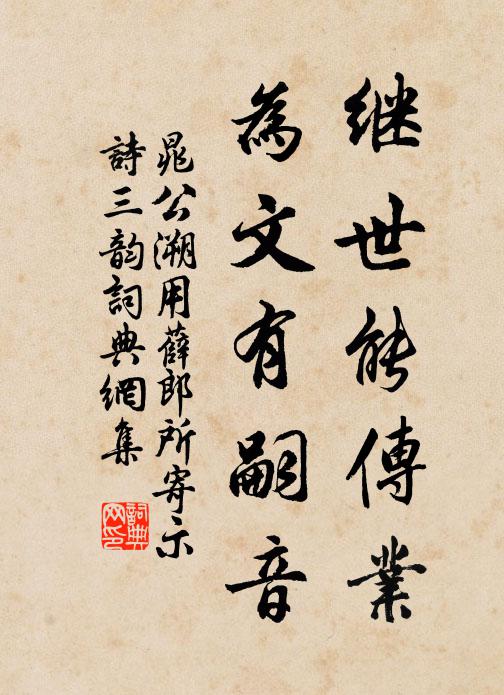 继世能傳業
為文有嗣音
晁公溯用薛郎所寄示
詩三韵詞典網集
詞典
网印